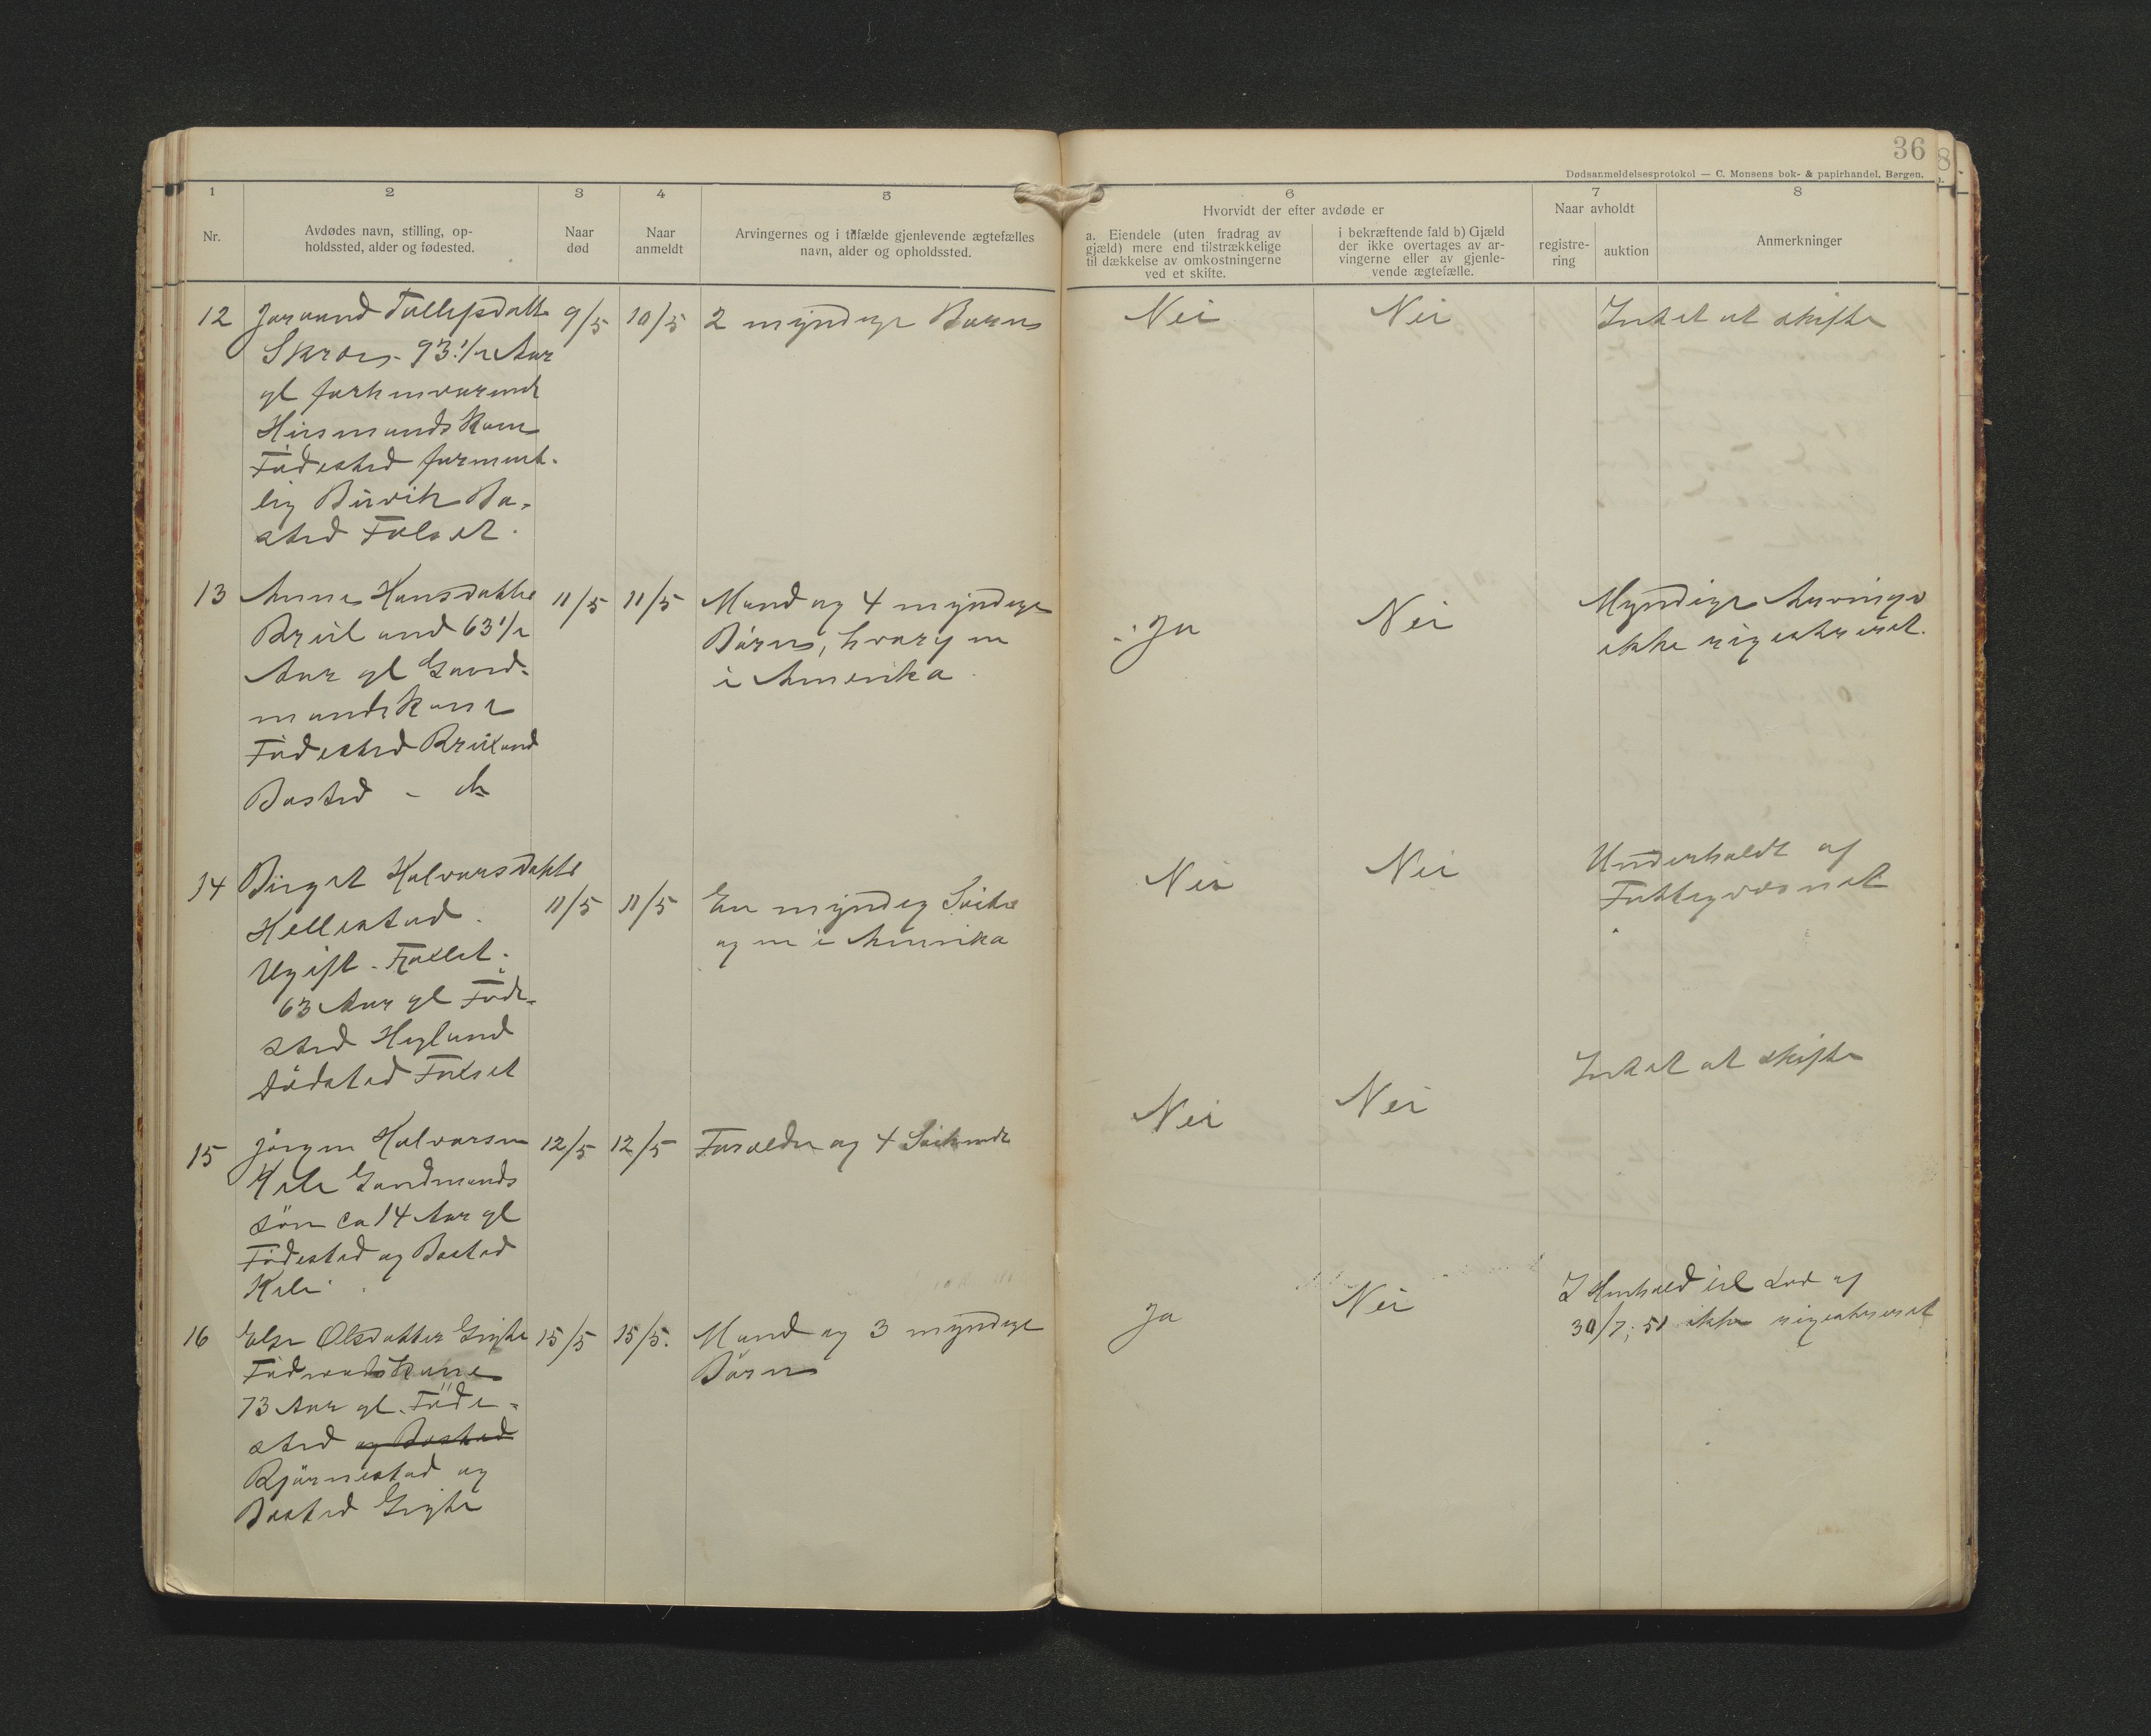 36
Dødsanmeldelsesprotokol — C. Monsens bok- & papirhandel, Bergen.
1
2
3
4
5
6
7
8
Nr.
Avdødes navn, stilling, op-
holdssted, alder og fødested.
Naar
død
Naar
anmeldt
Arvingernes og i tilfælde gjenlevende ægtefælles
navn, alder og opholdssted.
Hvorvidt der efter avdøde er
a. Eiendele (uten fradrag av
gjæld) mere end tilstrækkelige
til dækkelse av omkostningerne
ved et skifte.
i bekræftende fald b) Gjæld
der ikke overtages av ar-
vingerne eller av gjenle-
vende ægtefælle.
Naar avholdt
registre-
ring
auktion
Anmerkninger
12
Joraand Tollefsdatt
93 1/2 Aar
gl forhenværende
Husmandskone
Födested forment-
lig Birvik Bo-
sted Folset.
9/5
10/5
2 myndige Börn
Nei
Nei
Intet at skifte
13
Anna Hansdatter
Briland 63 1/2
Aar gl Gaard-
mandskone
Födested Briland
Bosted - do
11/5
11/5
Mand og 4 myndige
Börn, hvoraf en
i Amerika
Ja
Nei
Myndige Arvinger
ikke registreret.
14
Birget Halvorsdatte
Hellestad.
Ugift. Folset.
63 Aar gl Föde-
sted Heglund
Dödsted Folset
11/5
11/5
En myndig Söster
og en i Amerika
Nei
Nei
Underholdt af
Fattigvæsnet
15
Jörgen Halvorsen
Keli Gaardmands
sön ca 14 Aar gl
Födested og Bosted
Keli
12/5
12/5
Forældre og 4 Söskende
Nei
Nei
Intet at skifte
16
Else Olsdatter Gryte
Föderaadskone
73 Aar gl. Föde-
sted og Bosted
Bjørnestad og
Bosted Gryte
15/5
15/5.
Mand og 3 myndige
Börn
Ja
Nei
I Henhold til Lov af
30/7, 51 ikke registreret